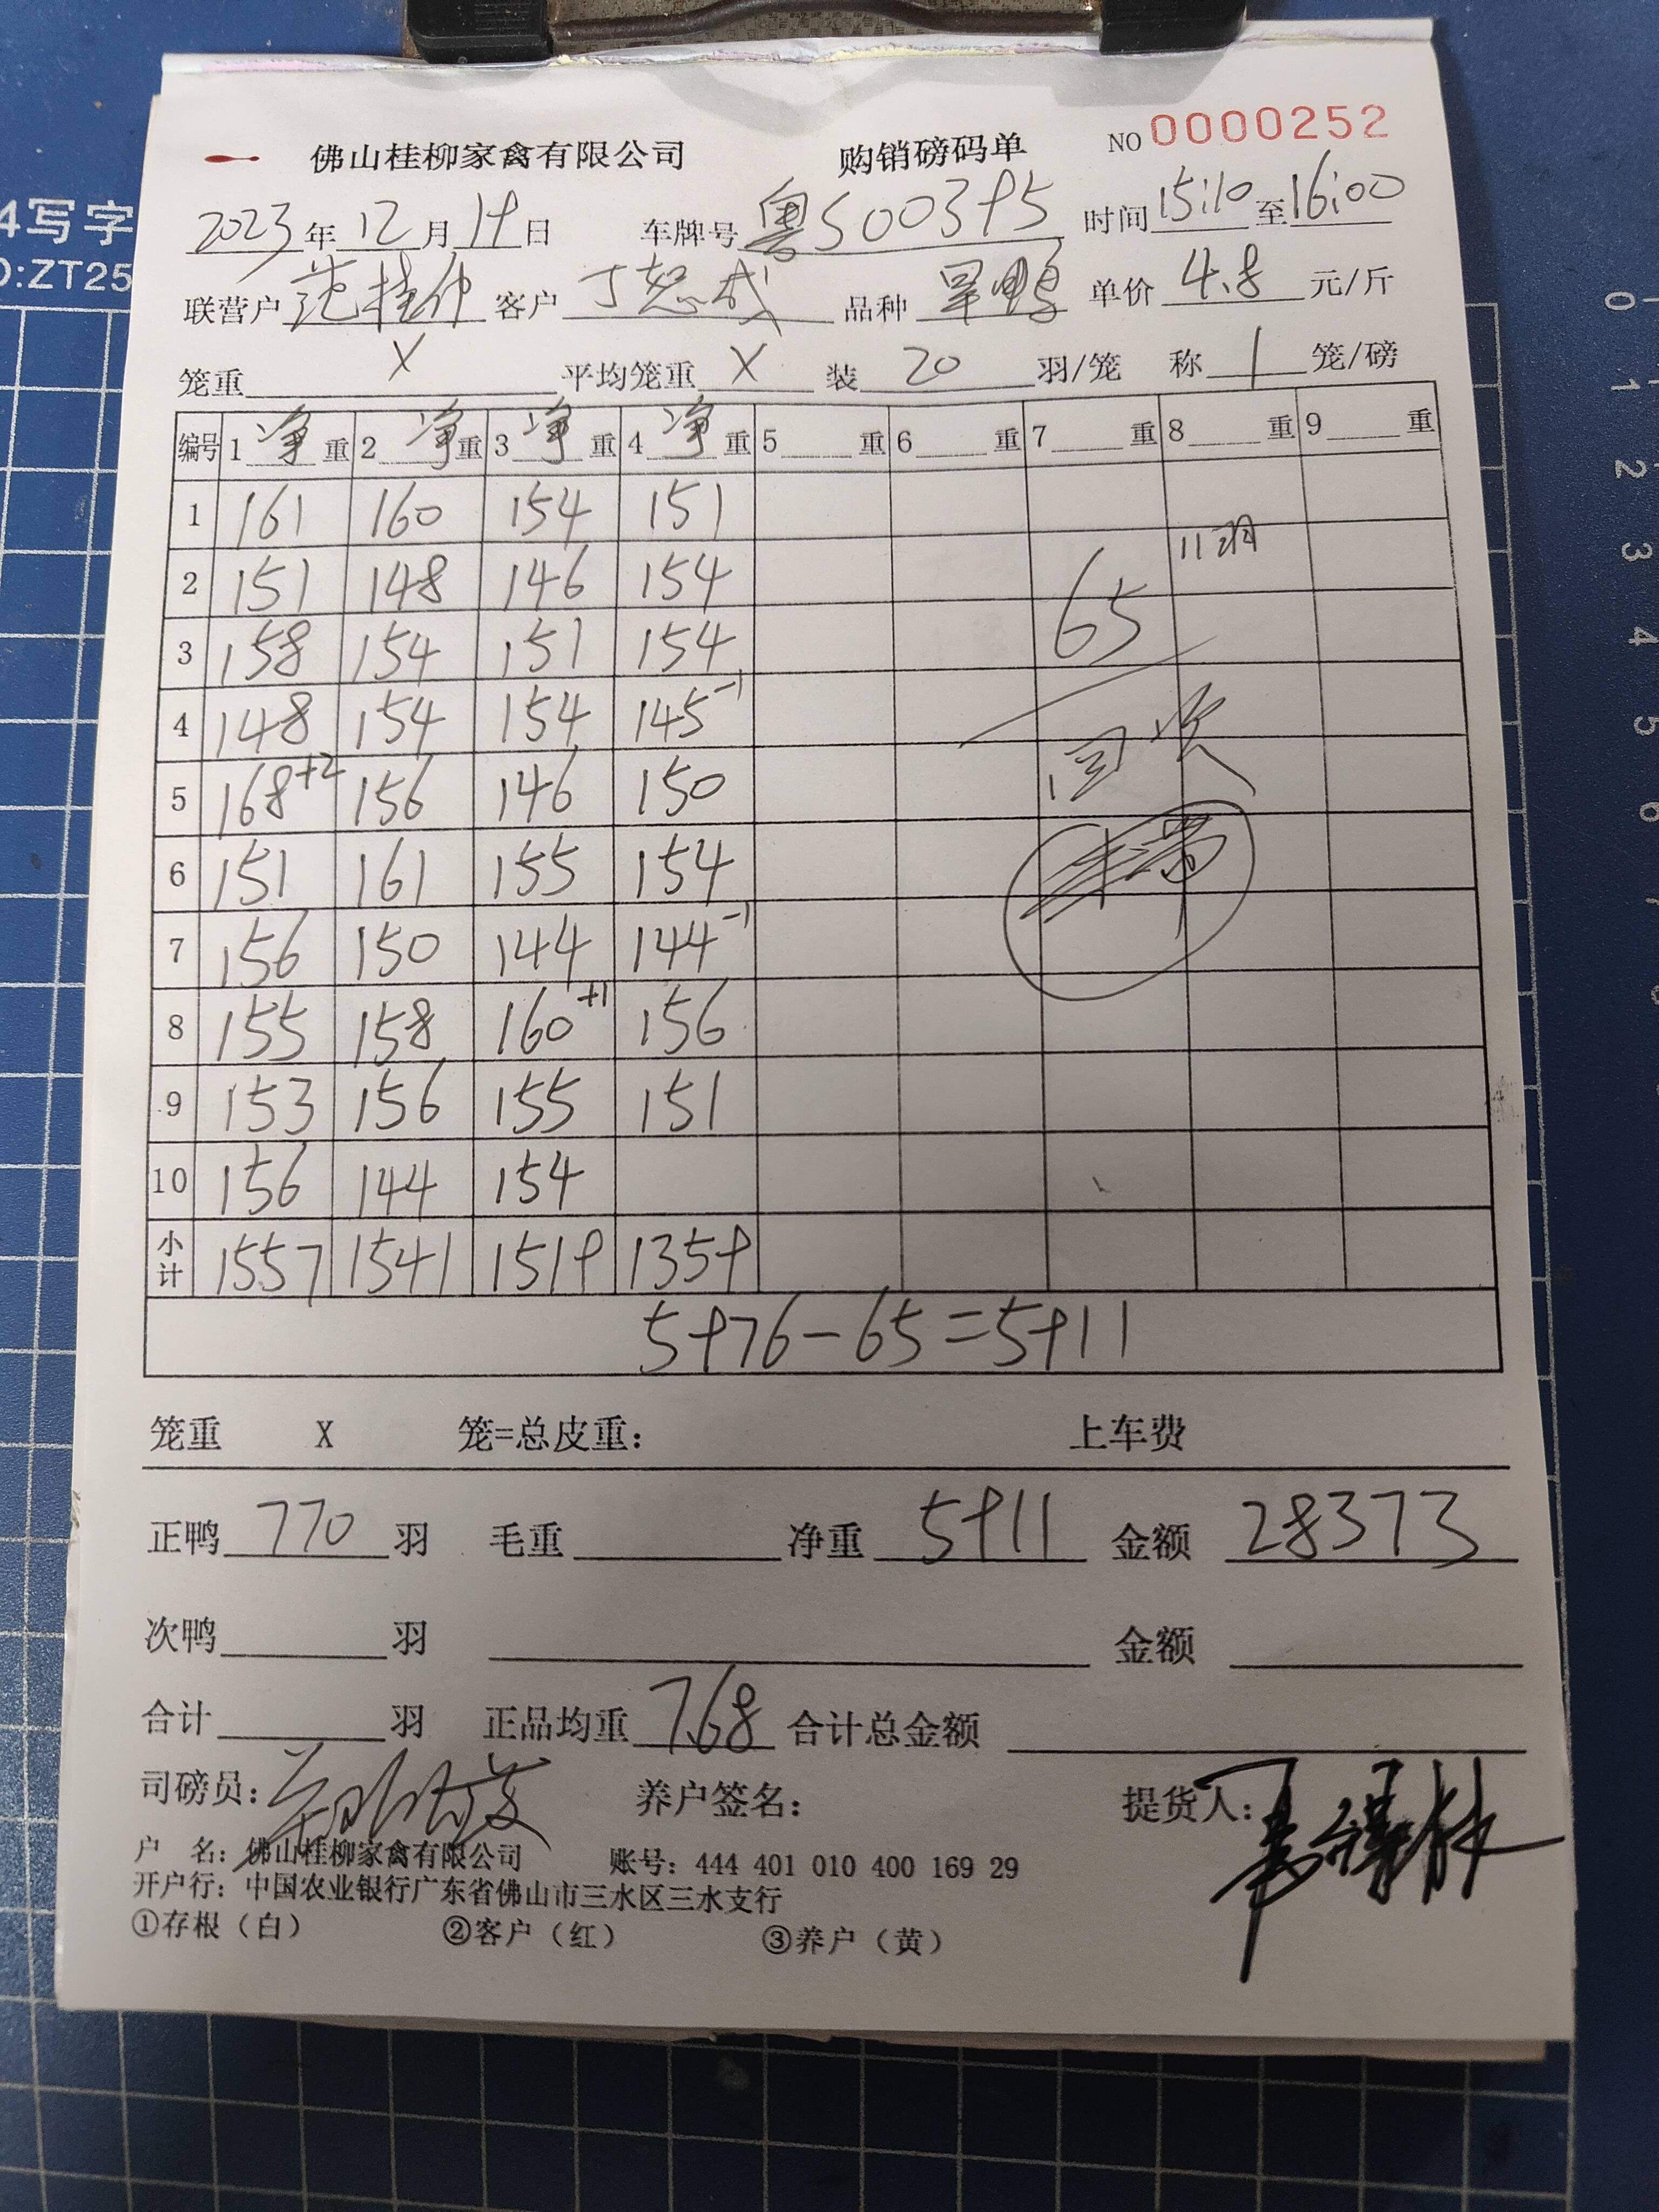 4写字
O:ZT25
佛山桂柳家禽有限公司 购销磅码单 NO 0000252
2023年12月19日 车牌号 粤S00395 时间 15:10 至 16:00
联营户 范桂仲 客户 丁恕成 品种 旱鸭 单价 4.8 元/斤
笼重 X 平均笼重 X 装 20 羽/笼 称 1 笼/磅
编号 1 净 重 2 净 重 3 净 重 4 净 重 5 重 6 重 7 重 8 重 9 重
1 161 160 154 151
2 151 148 146 154 65 11羽
3 158 154 151 154
4 148 154 154 145-1 回次
5 168+2 156 146 150
6 151 161 155 154
7 156 150 144 144-1
8 155 158 160+1 156
9 153 156 155 151
10 156 144 154
小计 1557 1541 1519 1359
5976-65=5911
笼重 X 笼=总皮重: 上车费
正鸭 770 羽 毛重 净重 5911 金额 28373
次鸭 羽 金额
合计 羽 正品均重 7.68 合计总金额
司磅员: 养户签名: 提货人:
户 名: 佛山桂柳家禽有限公司 账号: 444 401 010 400 169 29
开户行: 中国农业银行广东省佛山市三水区三水支行
①存根（白） ②客户（红） ③养户（黄）
0
1
2
3
4
5
6
7